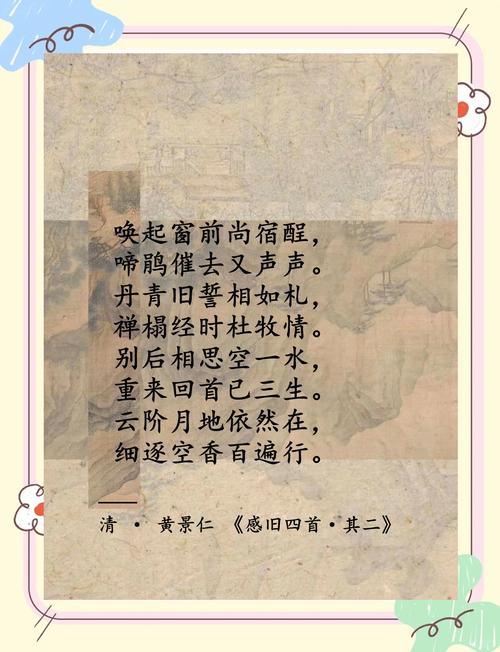 唤起窗前尚宿酲，
啼鹃催去又声声。
丹青旧誓相如札，
禅榻经时杜牧情。
别后相思空一水，
重来回首已三生。
云阶月地依然在，
细逐空香百遍行。
——
清 · 黄景仁 《感旧四首·其二》